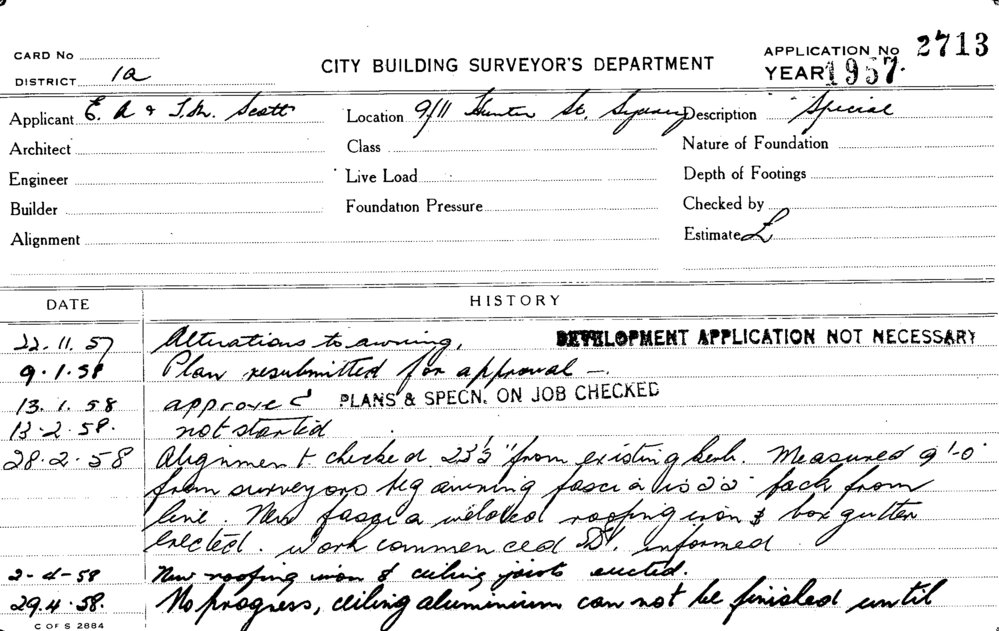 CARD No
DISTRICT 1a
CITY BUILDING SURVEYOR'S DEPARTMENT
APPLICATION No 2713
YEAR 1957.
Applicant E. A & T.M. Scott
Location 9/11 Hunter St. Sydney
Description Special
Architect
Class
Nature of Foundation
Engineer
Live Load
Depth of Footings
Builder
Foundation Pressure
Checked by
Alignment
Estimate £
DATE HISTORY
22.11.57 Alterations to awning. DEVELOPMENT APPLICATION NOT NECESSARY
9.1.58 Plan resubmitted for approval —.
13.1.58 approved PLANS & SPECN. ON JOB CHECKED
13.2.58. not started
28.2.58 Alignment checked 23'3" from existing kerb. Measured 9'-0"
from surveyors peg awning fascia is back from
line. New fascia welded roofing iron & box gutter
erected. work commenced informed
2-4-58 New roofing iron & ceiling joists erected.
29.4.58. No progress, ceiling aluminium can not be finished until
C OF S 2884